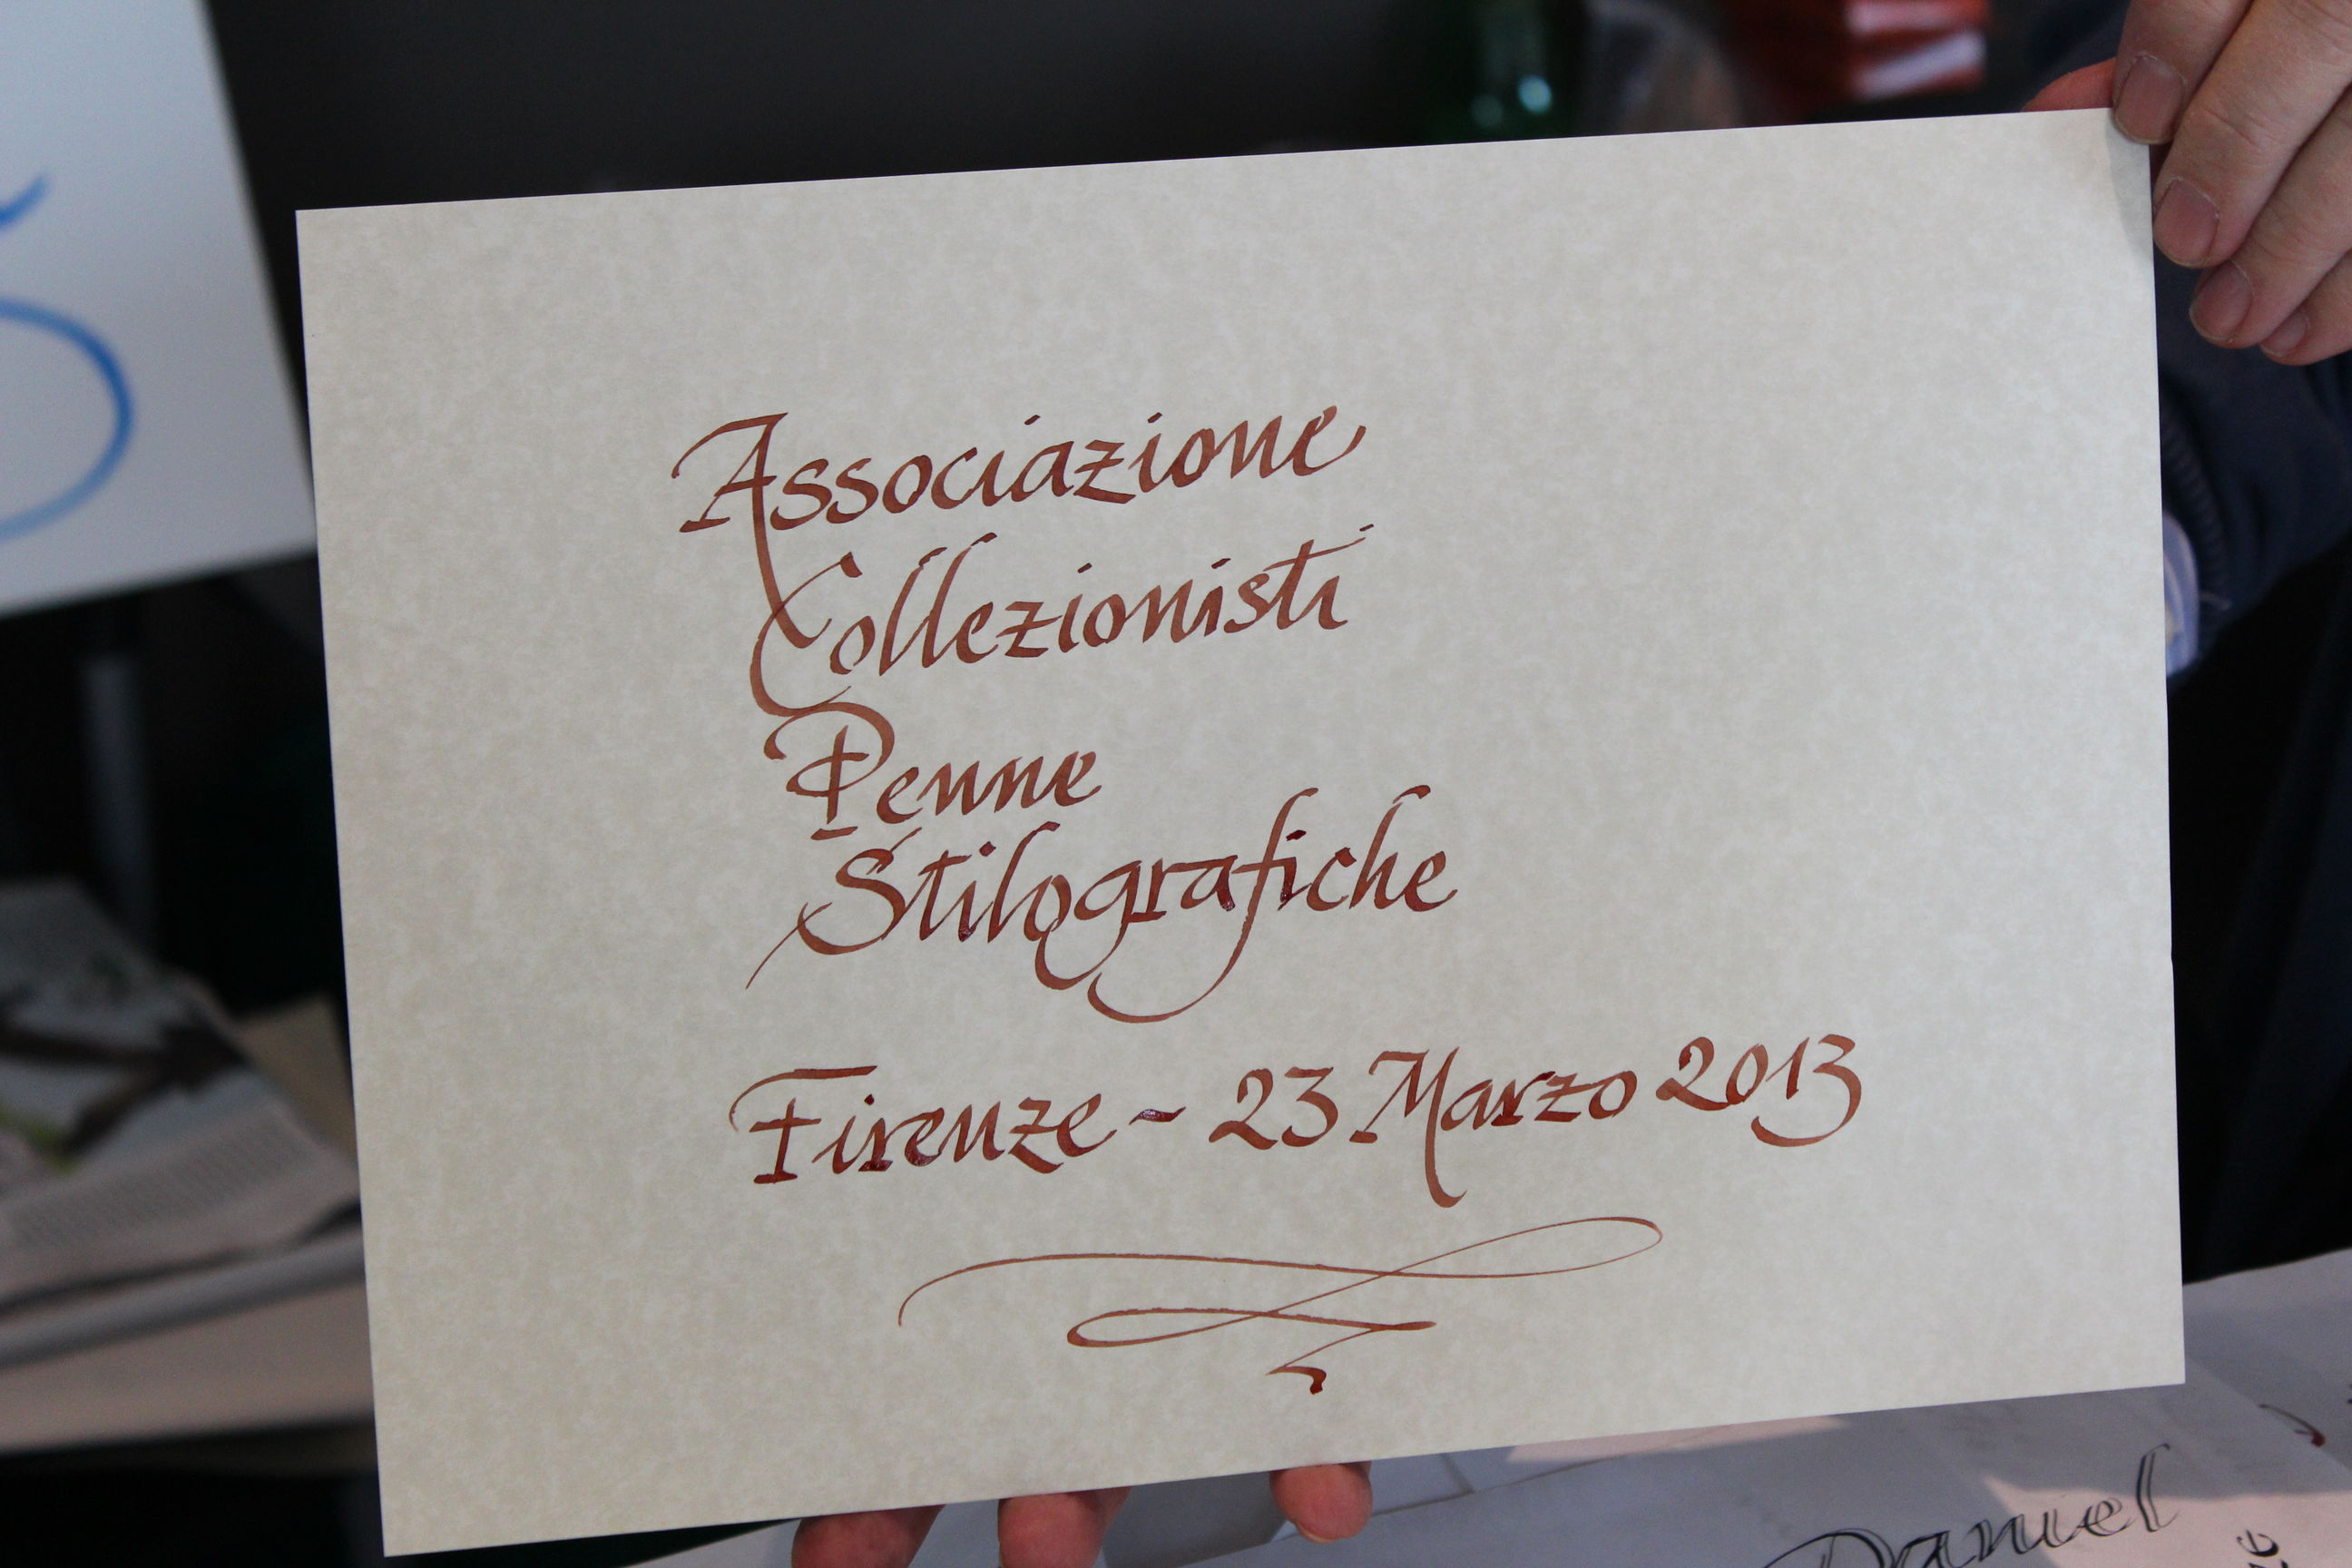 Associazione
Collezionisti
Penne
Stilografiche
Firenze ~ 23 Marzo 2013
Daniel